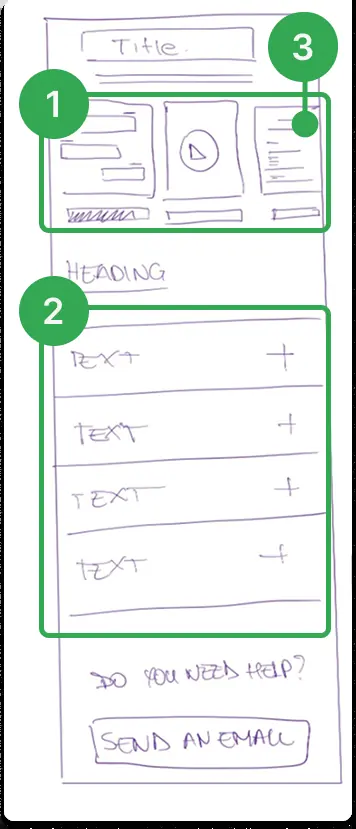 3
Title.
1
HEADING
2
TEXT +
TEXT +
TEXT +
TEXT +
DO YOU NEED HELP?
SEND AN EMAIL